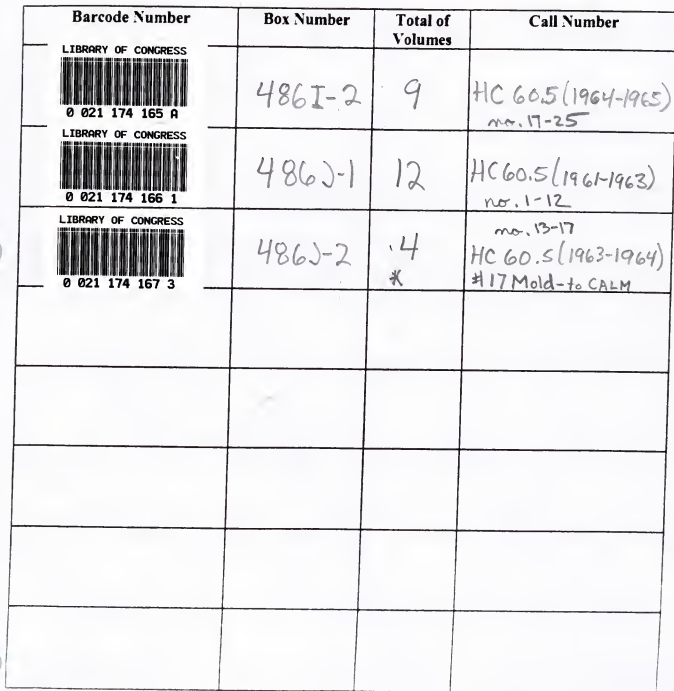 Barcode Number Box Number Total of Volumes Call Number
LIBRARY OF CONGRESS
0 021 174 165 A
486I-2 9 HC 60.5 (1964-1965)
no. 17-25
LIBRARY OF CONGRESS
0 021 174 166 1
486J-1 12 HC 60.5 (1961-1963)
no. 1-12
LIBRARY OF CONGRESS
0 021 174 167 3
486J-2 .4
*
no. 13-17
HC 60.5 (1963-1964)
#17 Mold-to CALM